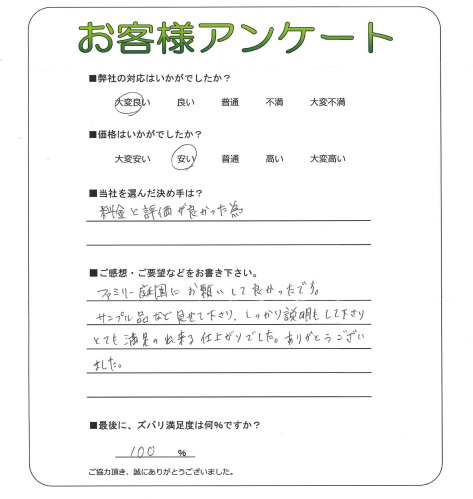 お客様アンケート
■弊社の対応はいかがでしたか？
大変良い 良い 普通 不満 大変不満
■価格はいかがでしたか？
大変安い 安い 普通 高い 大変高い
■当社を選んだ決め手は？
料金と評価が良かった為
■ご感想・ご要望などをお書き下さい。
ファミリー庭園にお願いして良かったです。
サンプル品など見せて下さり、しっかり説明もして下さり
とても満足の出来る仕上がりでした。ありがとうござい
ました。
■最後に、ズバリ満足度は何％ですか？
100 ％
ご協力頂き、誠にありがとうございました。